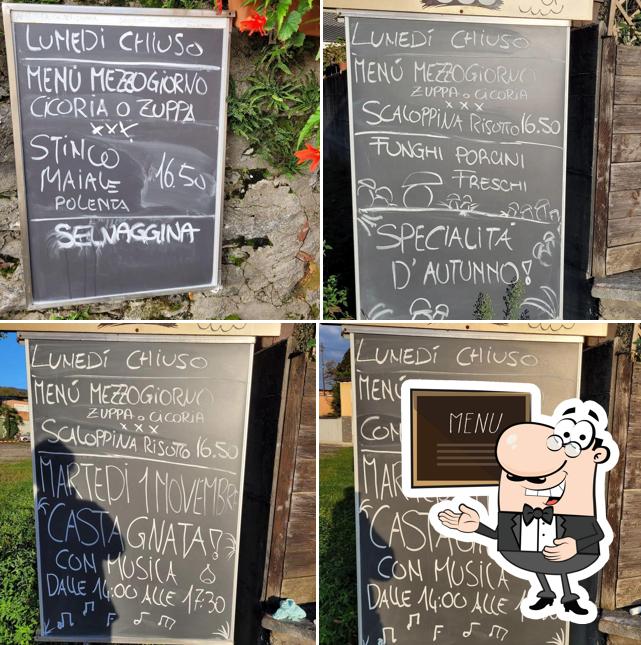 LUNEDÌ CHIUSO
MENÙ MEZZOGIORNO
CICORIA O ZUPPA
xxx
STINCO
MAIALE 16.50
POLENTA
SELVAGGINA
LUNEDÌ CHIUSO
MENÚ MEZZOGIORNO
ZUPPA o CICORIA
xxx
SCALOPPINA RISOTTO 16.50
FUNGHI PORCINI
FRESCHI
SPECIALITÀ
D'AUTUNNO!
LUNEDÍ CHIUSO
MENÚ MEZZOGIORNO
ZUPPA o CICORIA
xxx
SCALOPPINA RISOTTO 16.50
MARTEDÌ 1 NOVEMBRE
CASTAGNATA!
CON MUSICA
DALLE 14:00 ALLE 17.30
LUNEDÍ CHIUSO
MENÚ
MENU
CON
CON MUSICA
DALLE 14:00 ALLE